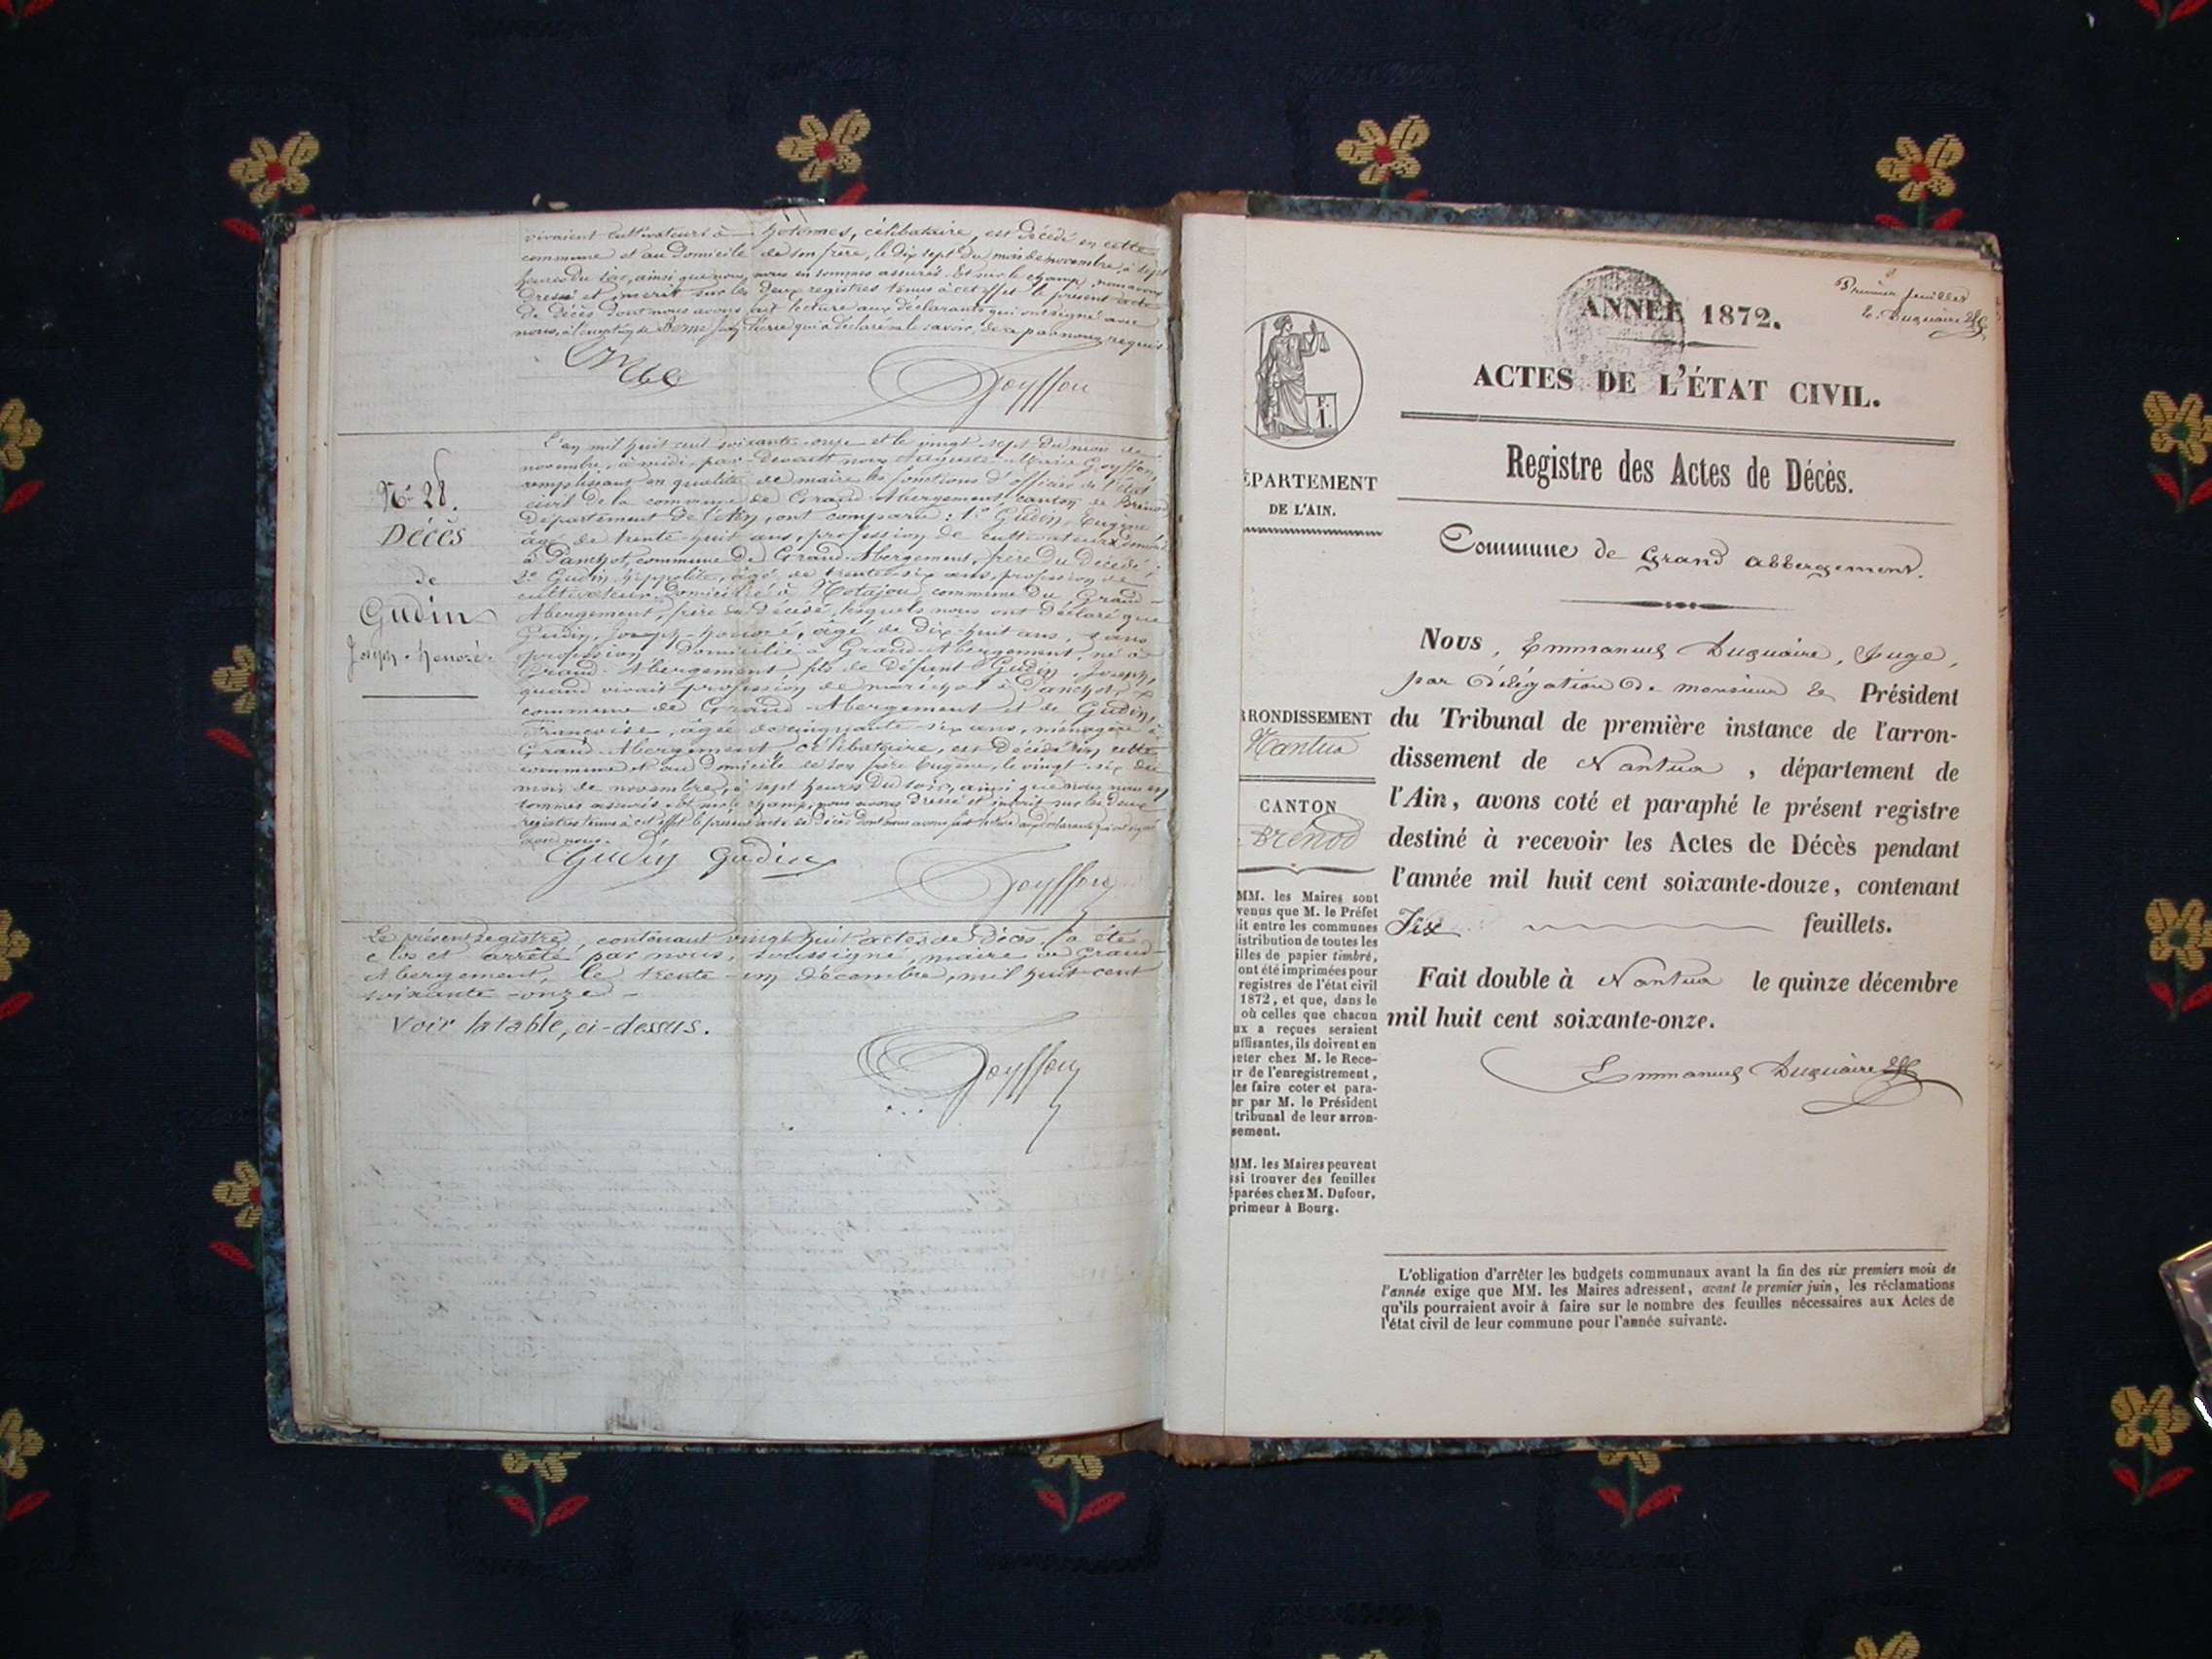 vivaient cultivateurs à Hotonnes, célibataire, est décédé en cette
commune et au domicile de son frère, le dix sept du mois de novembre, à sept
heures du soir, ainsi que nous, nous en sommes assurés. Et sur le champ, nous avons
dressé et inscrit sur les deux registres tenus à cet effet le présent acte
de décès dont nous avons fait lecture aux déclarants qui ont signé avec
nous, à l'exception de Jean Pierre qui a déclaré ne le savoir, de ce par nous requis
Goyffon
N° 28.
Décès
de
Gudin
Joseph-honoré.
L'an mil huit cent soixante-onze et le vingt sept du mois de
novembre, à midi, par-devant nous Auguste-Marie Goyffon,
remplissant en qualité de maire les fonctions d'officier de l'état
civil de la commune de Grand-Abergement, canton de Brénod
Département de l'Ain, ont comparu: 1° Gudin, Eugène
âgé de trente-huit ans, profession de cultivateur
à commune de Grand-Abergement, frère du décédé;
2° Gudin, hippolite, âgé de trente-six ans, profession de
cultivateur, domicilié à commune du Grand-
Abergement, frère du décédé, lesquels nous ont déclaré que
Gudin, Joseph-honoré, âgé de dix-huit ans, sans
profession domicilié à Grand-Abergement, né à
Grand-Abergement, fils de défunt Gudin, Joseph,
quand vivait profession de maréchal à
commune de Grand-Abergement et de Gudin,
Françoise, âgée de cinquante-six ans, ménagère à
Grand-Abergement célibataire, est décédé en cette
commune et au domicile de son frère Eugène, le vingt-six du
mois de novembre, à sept heures du soir, ainsi que nous nous en
sommes assurés. Et sur le champ, nous avons dressé et inscrit sur les deux
registres tenus à cet effet le présent acte de décès dont nous avons fait lecture aux déclarants qui ont signé
avec nous.
Gudin Gudin
Goyffon
Le présent registre, contenant vingt huit actes de décès, a été
clos et arrêté par nous, soussigné, maire de Grand-
Abergement, le trente-un décembre, mil huit-cent
soixante-onze-
Voir la table, ci-dessus.
Goyffon
Premier feuillet
E. Duquaire
ANNÉE 1872.
ACTES DE L'ÉTAT CIVIL.
Registre des Actes de Décès.
F.
1.
ÉPARTEMENT
DE L'AIN.
Commune de Grand abbergement.
Nous, Emmanuel Duquaire, Juge,
par délégation de monsieur le Président
du Tribunal de première instance de l'arron-
dissement de Nantua, département de
l'Ain, avons coté et paraphé le présent registre
destiné à recevoir les Actes de Décès pendant
l'année mil huit cent soixante-douze, contenant
Six feuillets.
Fait double à Nantua le quinze décembre
mil huit cent soixante-onze.
Emmanuel Duquaire
RRONDISSEMENT
Nantua
CANTON
Brénod
MM. les Maires sont
venus que M. le Préfet
it entre les communes
istribution de toutes les
illes de papier timbré,
ont été imprimées pour
registres de l'état civil
1872, et que, dans le
où celles que chacun
ux a reçues seraient
uffisantes, ils doivent en
eter chez M. le Rece-
r de l'enregistrement,
les faire coter et para-
er par M. le Président
tribunal de leur arron-
sement.
MM. les Maires peuvent
ssi trouver des feuilles
éparées chez M. Dufour,
primeur à Bourg.
L'obligation d'arrêter les budgets communaux avant la fin des six premiers mois de
l'année exige que MM. les Maires adressent, avant le premier juin, les réclamations
qu'ils pourraient avoir à faire sur le nombre des feuilles nécessaires aux Actes de
l'état civil de leur commune pour l'année suivante.